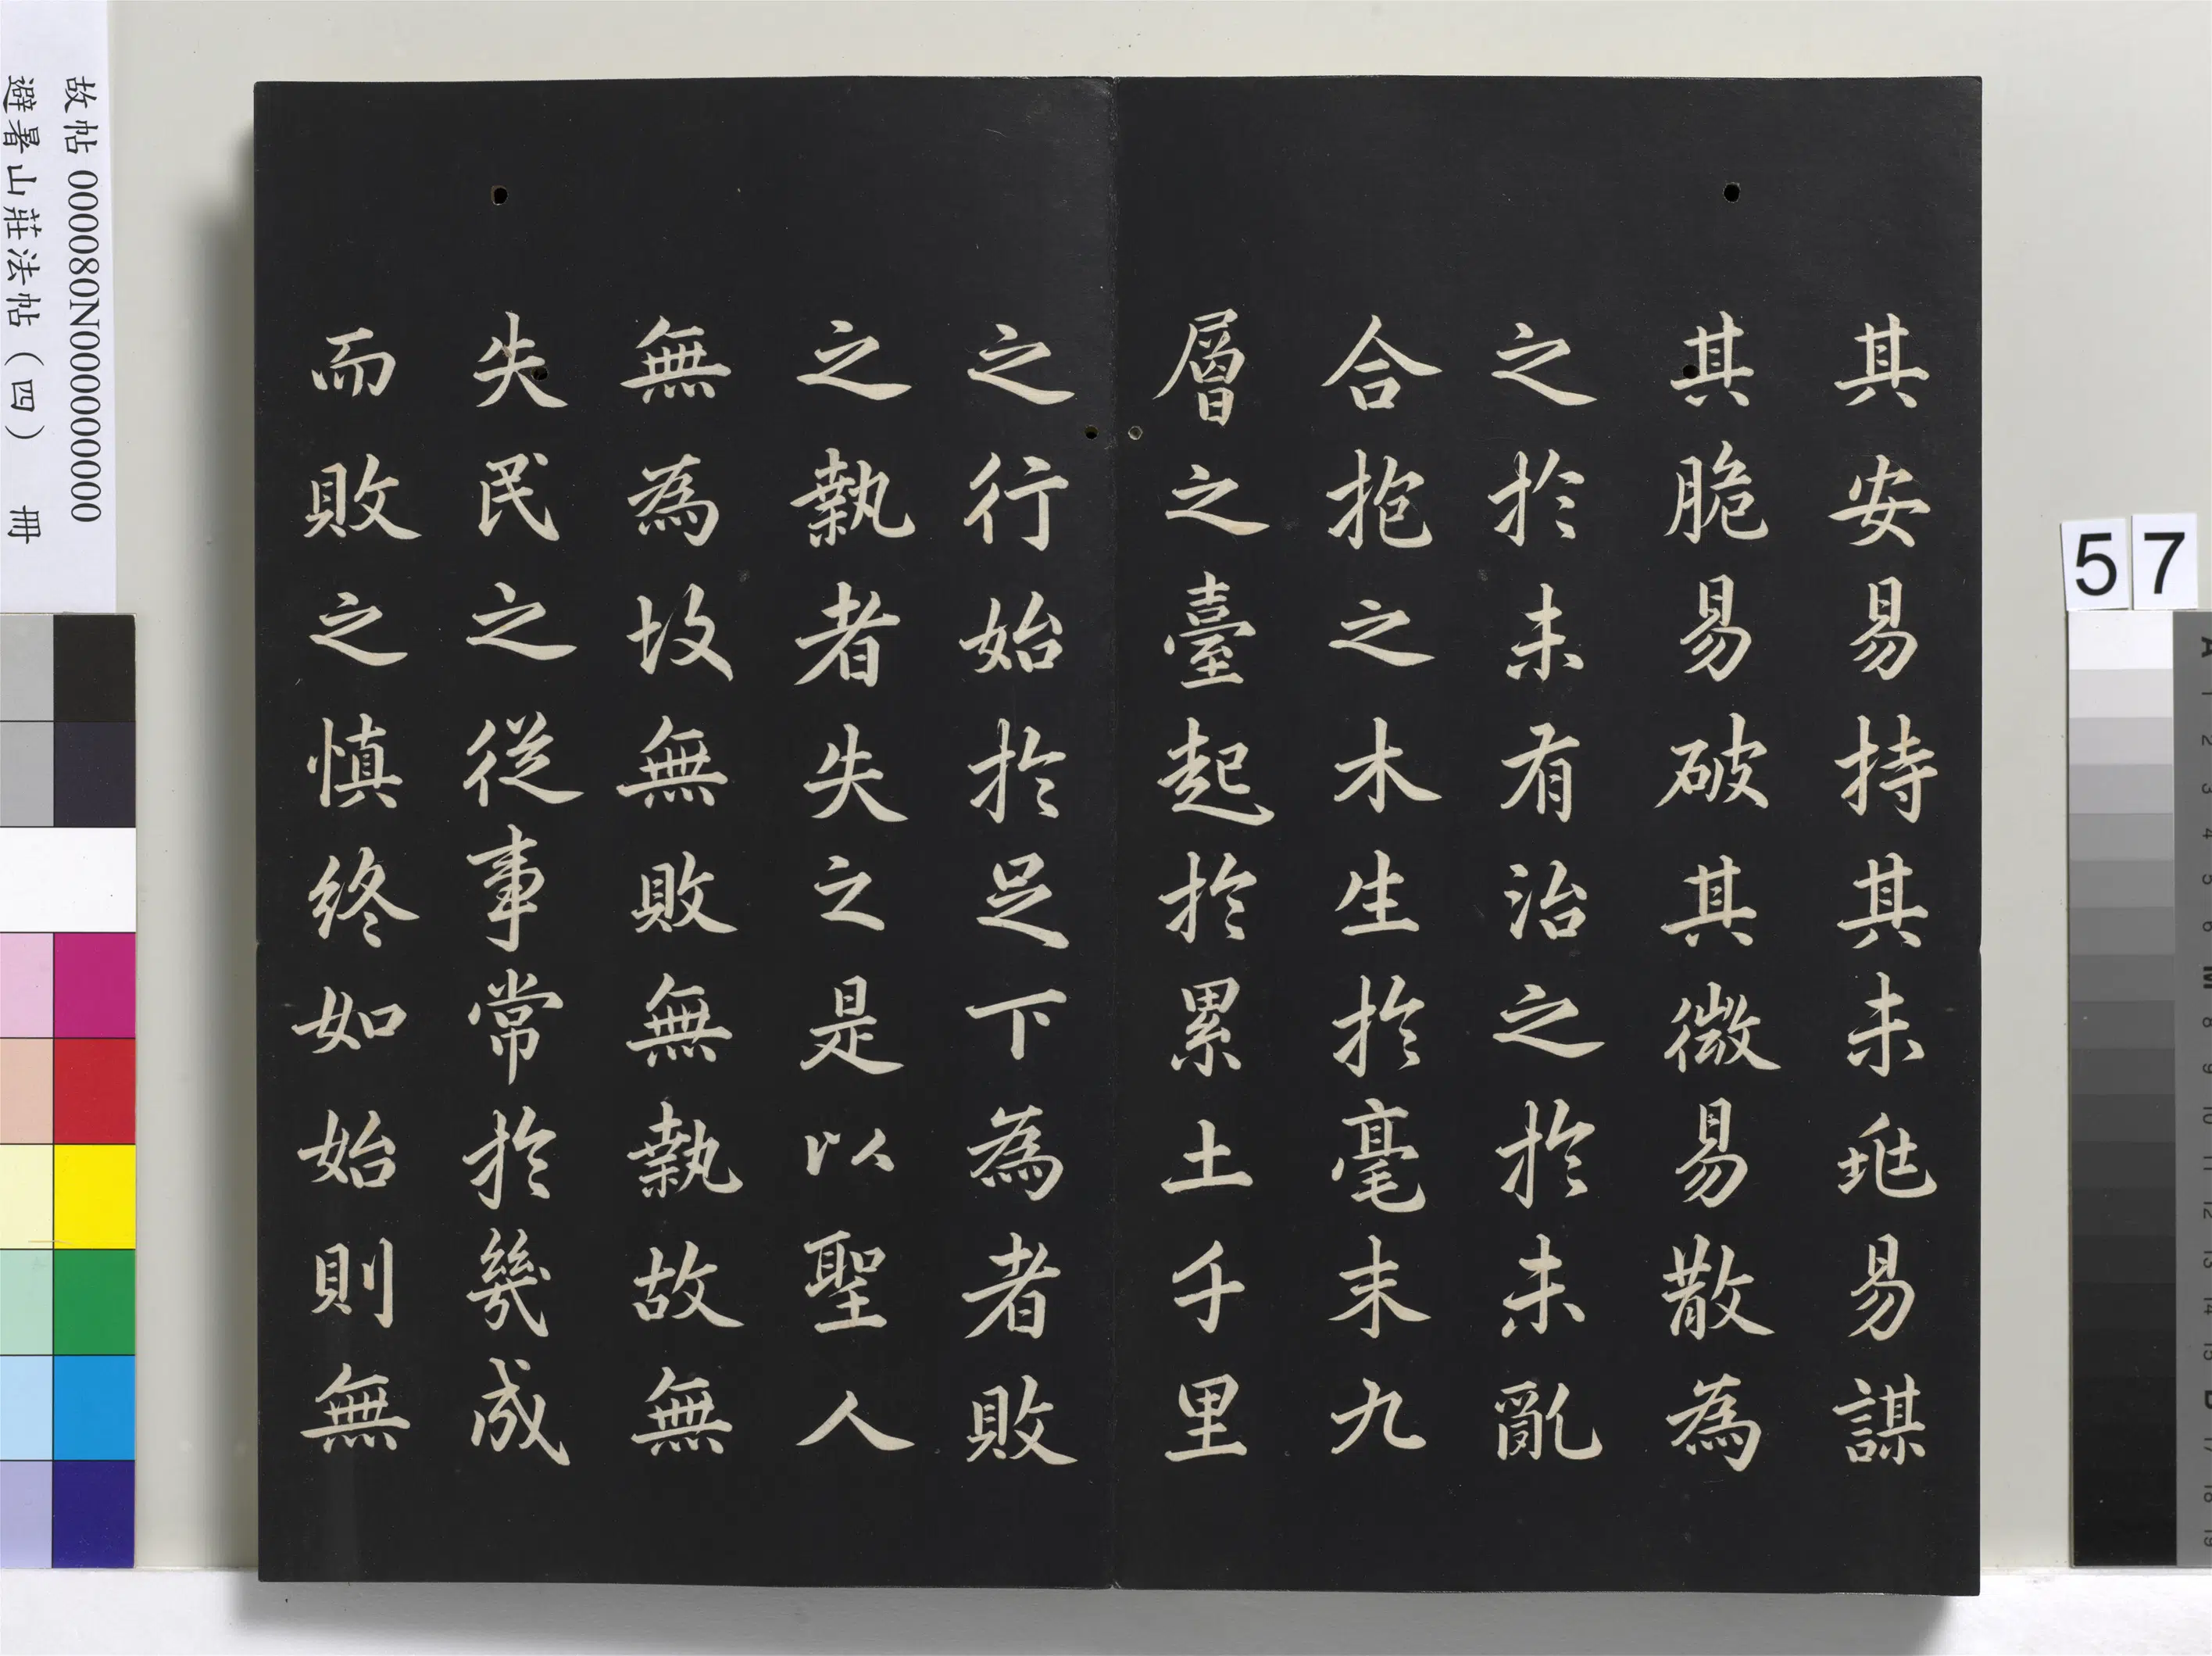 其安易持其未兆易謀
其脆易破其微易散為
之於未有治之於未亂
合抱之木生於毫末九
層之臺起於累土千里
之行始於足下為者敗
之執者失之是以聖人
無為坆無敗無執故無
失民之從事常於幾成
而敗之慎終如始則無
故帖 000080N000000000
避暑山莊法帖（四） 冊
57
A 1 2 3 4 5 6 M 8 9 10 11 12 13 14 15 B 17 18 19